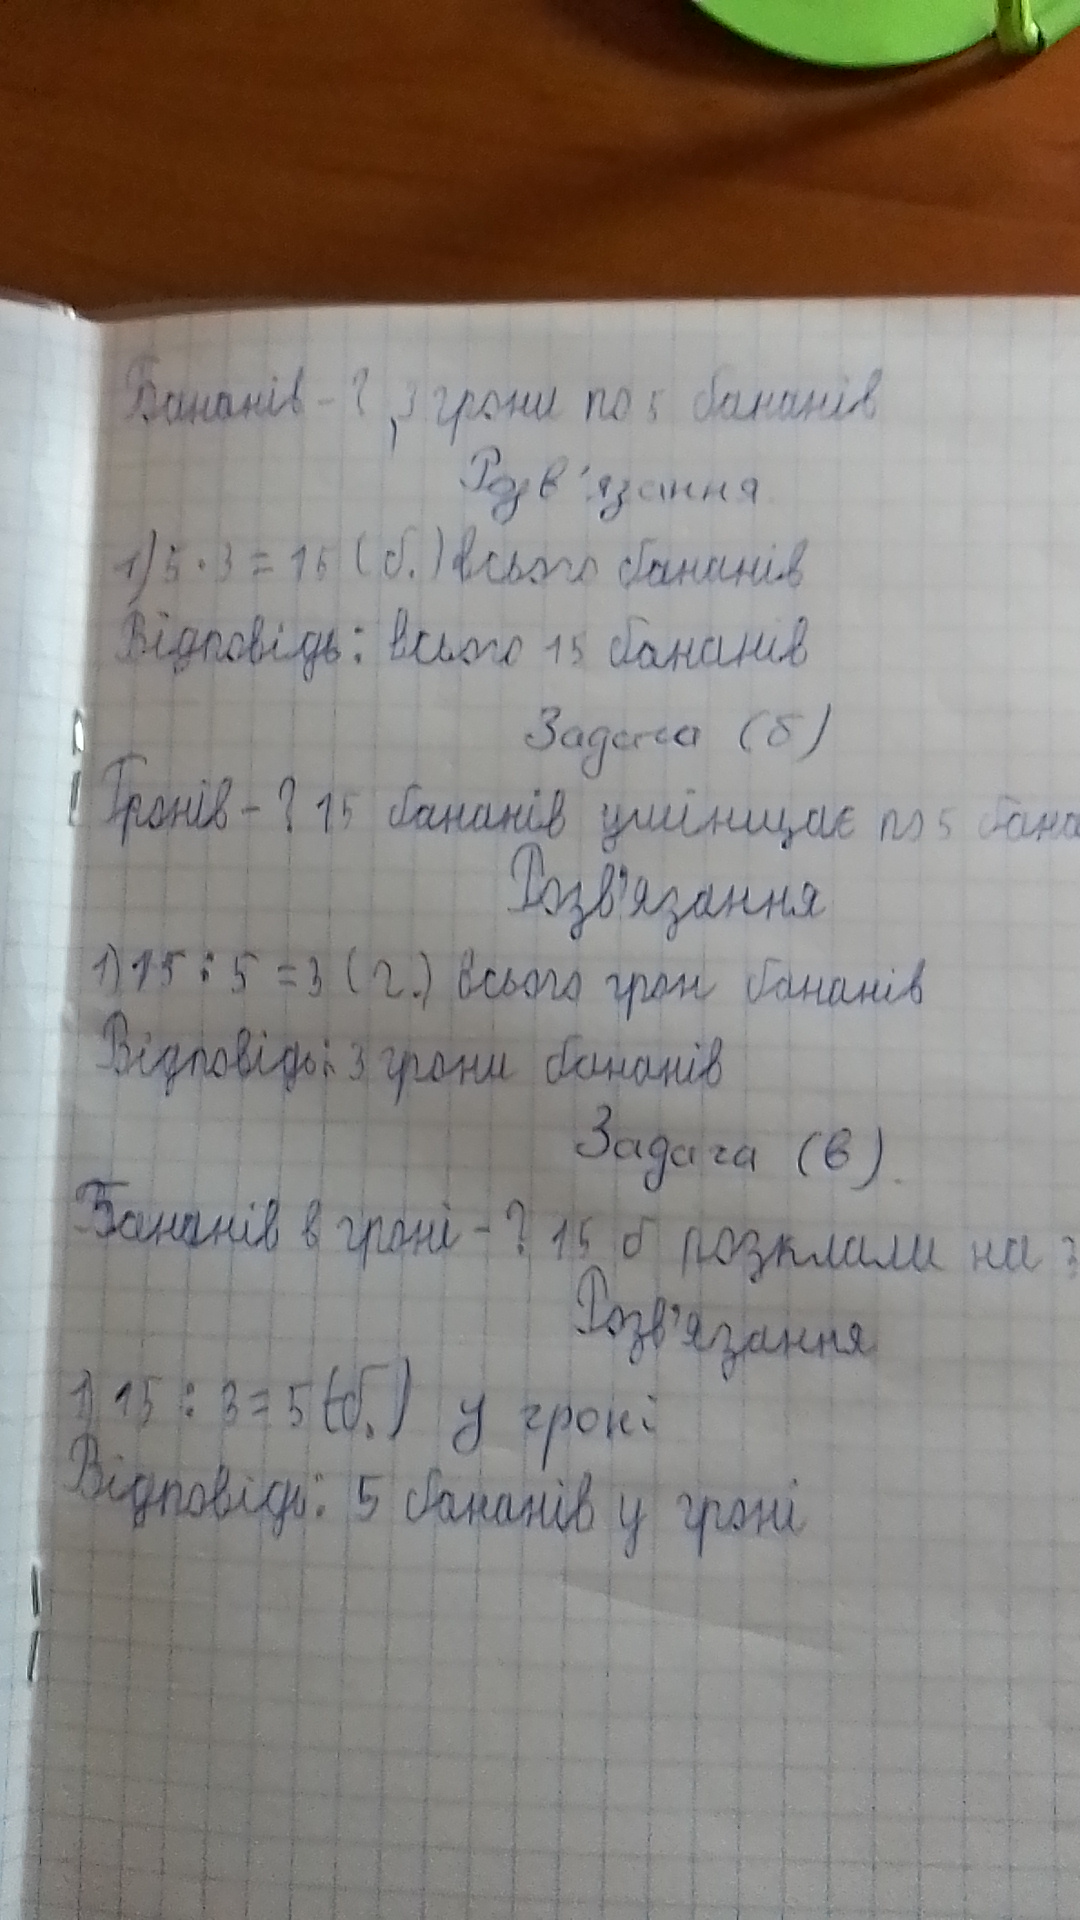 Бананів - ? , 3 грони по 5 бананів
Розв'язання
1) 5 · 3 = 15 (б.) всього бананів
Відповідь: всього 15 бананів
Задача (б)
Гронів - ? 15 бананів по 5 бана
Розв'язання
1) 15 : 5 = 3 (г.) всього грон бананів
Відповідь: 3 грони бананів
Задача (в).
Бананів в гроні - ? 15 б розклали на 3
Розв'язання
1) 15 : 3 = 5 (б.) у гроні
Відповідь: 5 бананів у гроні